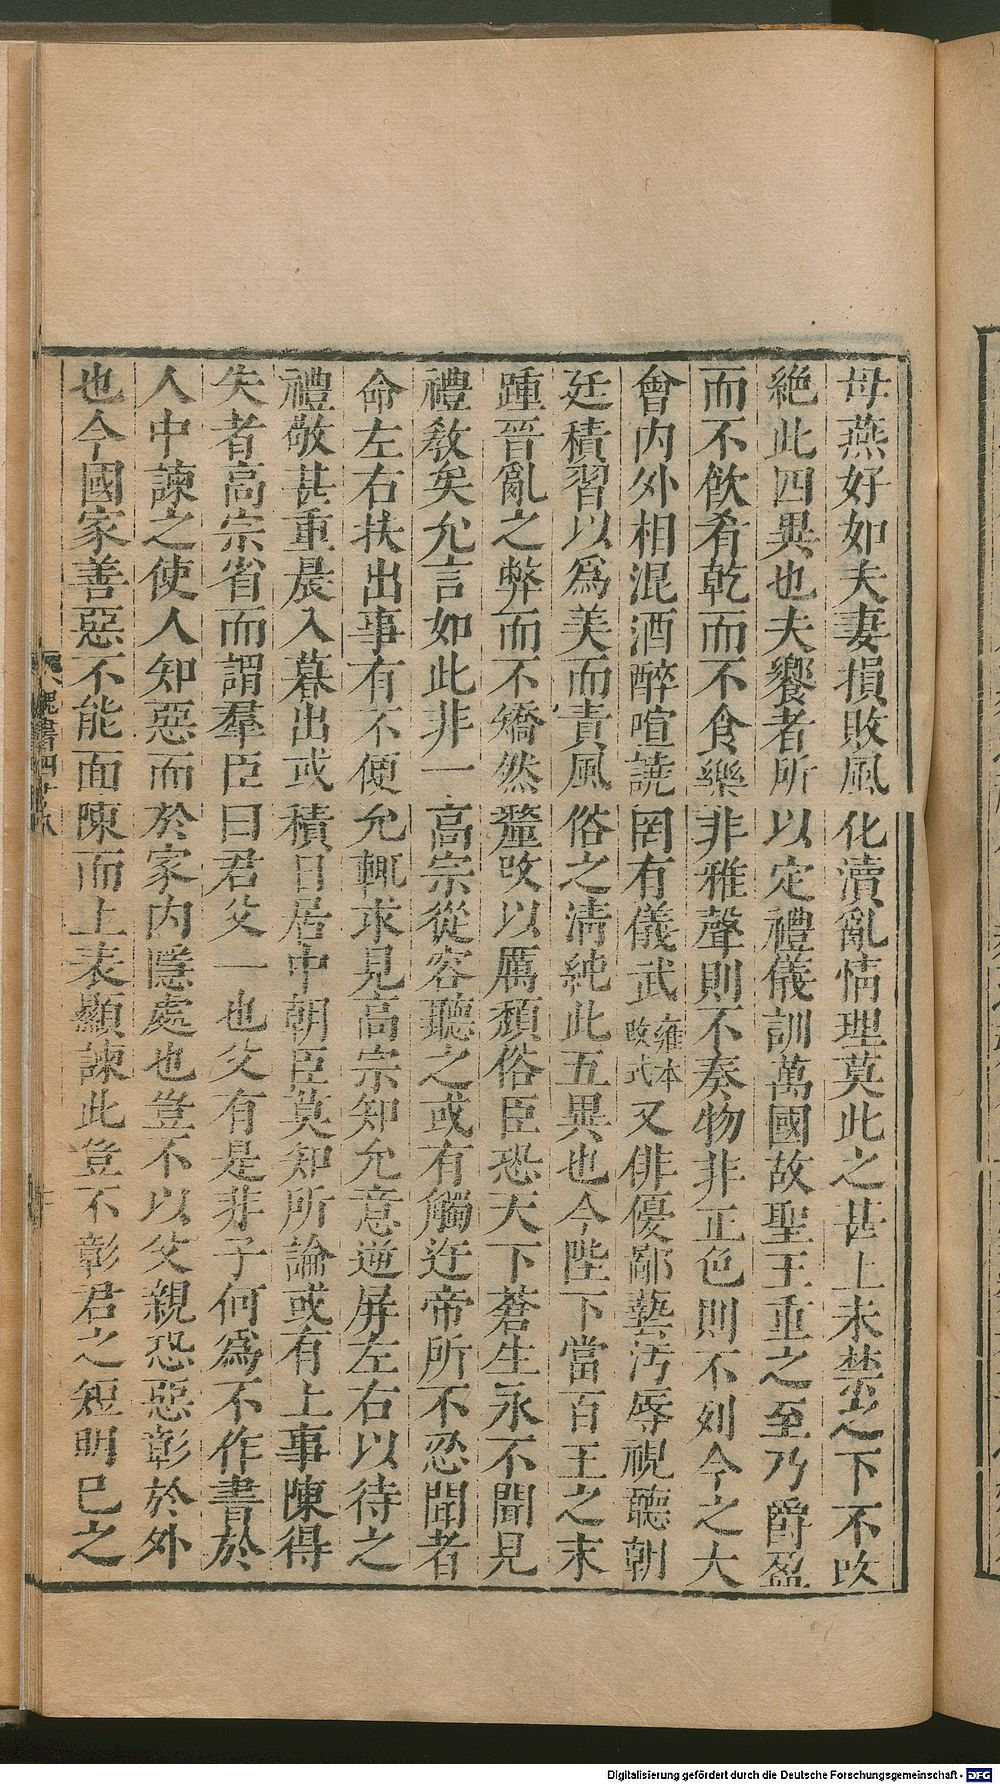 母燕好如夫妻損敗風化瀆亂情理莫此之甚上未禁之下不改
絶此四異也夫饗者所以定禮儀訓萬國故聖王重之至乃爵盈
而不飮肴乾而不食樂非雅聲則不奏物非正色則不列今之大
會内外相混酒醉喧譊罔有儀武雍本改式又俳優鄙藝汚辱視聽朝
廷積習以爲美而責風俗之清純此五異也今陛下當百王之末
踵晉亂之弊而不矯然釐改以厲頹俗臣恐天下蒼生永不聞見
禮敎矣允言如此非一高宗從容聽之或有觸迕帝所不忍聞者
命左右扶出事有不便允輒求見高宗知允意逆屏左右以待之
禮敬甚重晨入暮出或積日居中朝臣莫知所論或有上事陳得
失者高宗省而謂羣臣曰君父一也父有是非子何爲不作書於
人中諫之使人知惡而於家内隱處也豈不以父親恐惡彰於外
也今國家善惡不能面陳而上表顯諫此豈不彰君之短明巳之
魏書四十八
Digitalisierung gefördert durch die Deutsche Forschungsgemeinschaft - DFG